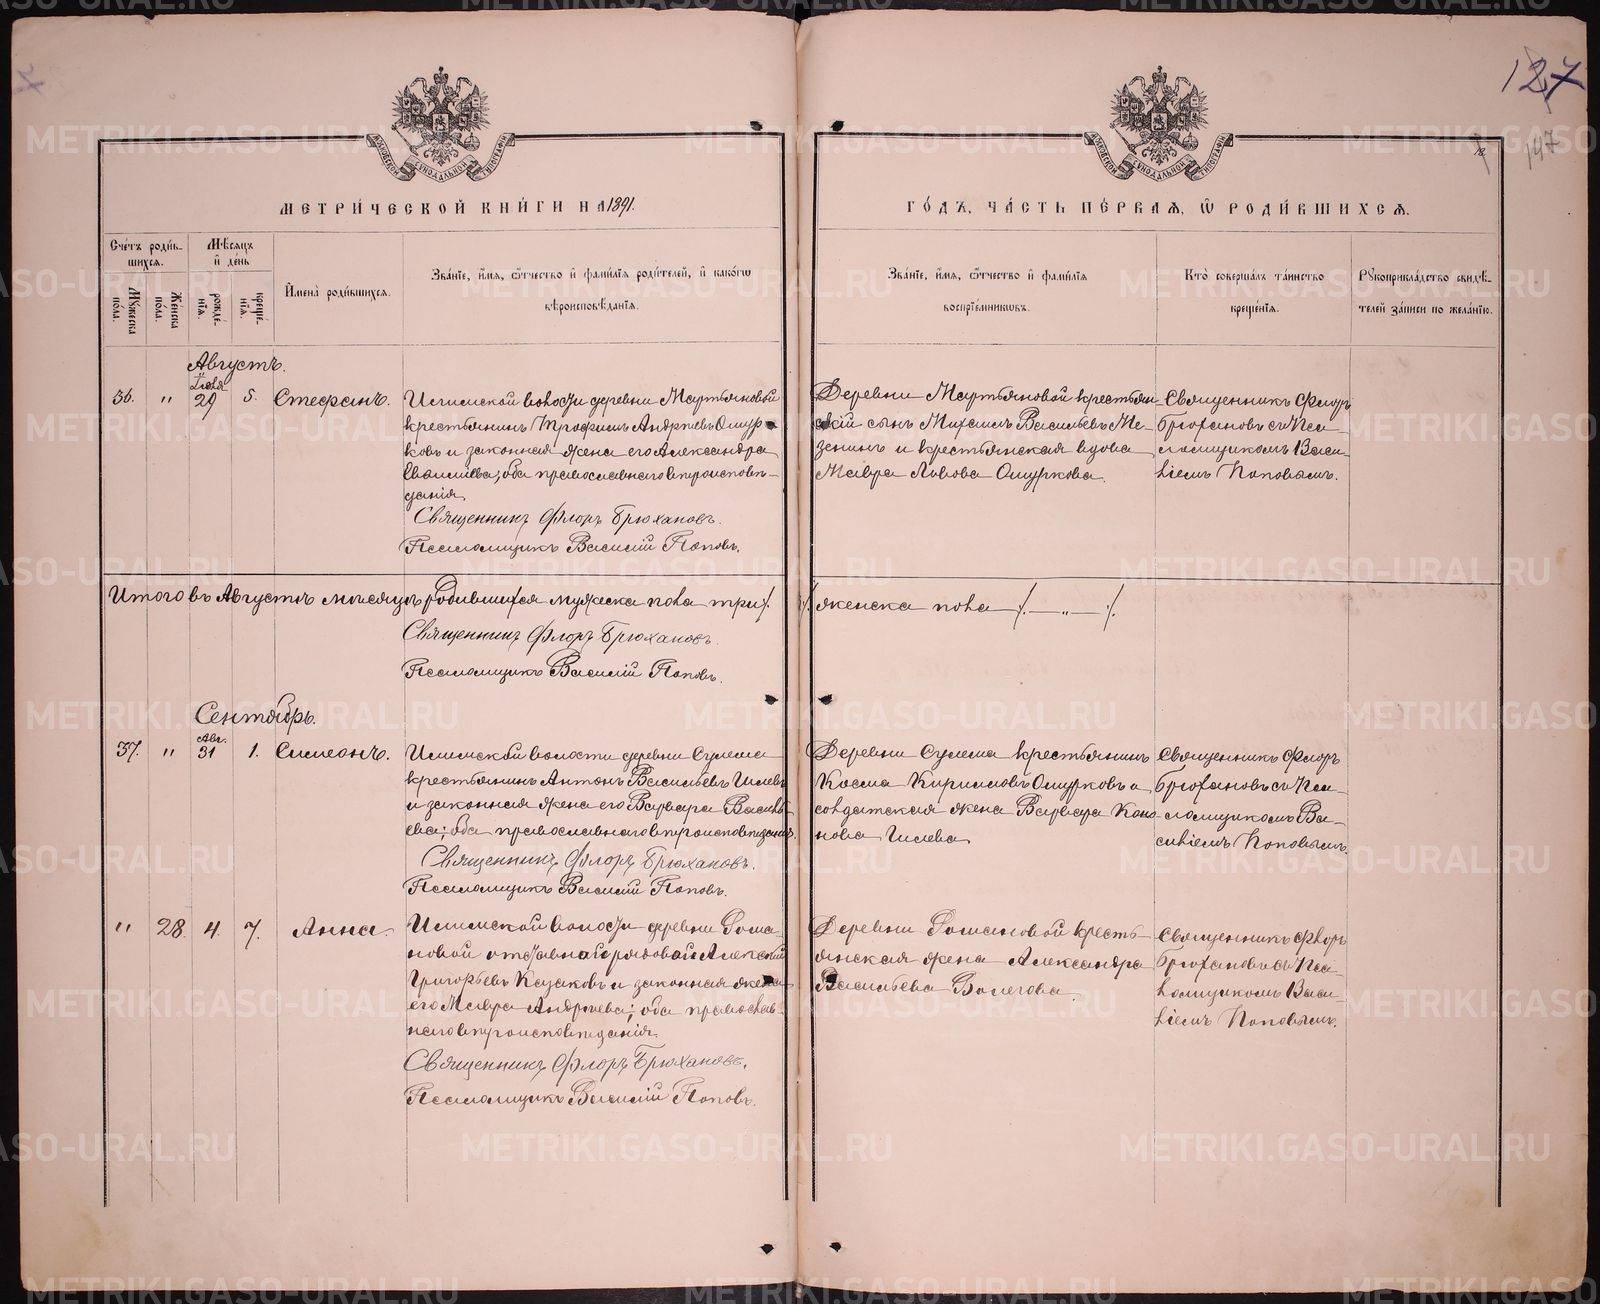 127
147
МЕТРИЧЕСКОЙ КНИГИ НА 1891.
ГОДЪ, ЧАСТЬ ПЕРВАЯ, Ѿ РОДИВШИХСЯ.
Счетъ родившихся.
Мѣсяцъ и день
Мужеска пола.
Женска пола.
рожденїя.
крещенїя.
Имена родившихся.
Званїе, имя, ѿтчество и фамилїя родителей, и какогѡ
вѣроисповѣданїя.
Званїе, имя, ѿтчество и фамилїя
воспрїемникѡвъ.
Кто совершалъ таинство
крещенїя.
Рукоприкладство свидѣтелей
записи по желанїю.
Августъ.
36. " Іюля 29 5. Стефанъ.
Илимской волости деревни Мартьяновой
крестьянинъ Трофимъ Андреевъ Ошурковъ
и законная жена его Александра
православнаго вѣроисповѣданія
Священникъ Флоръ Брюхановъ.
Псаломщикъ Василій Поповъ.
Деревни Мартьяновой крестьянскій
сынъ Михаилъ Васильевъ Мезенинъ
и крестьянская вдова
Мавра Львова Ошуркова.
Священникъ Флоръ
Брюхановъ съ Псаломщикомъ
Василіемъ Поповымъ.
Итого въ Августѣ мѣсяцѣ родившихся мужеска пола три ./.
./. женска пола ./. — " — ./.
Священникъ Флоръ Брюхановъ.
Псаломщикъ Василій Поповъ.
Сентябрь.
37. " Авг. 31 1. Симеонъ.
Илимской волости деревни Сулема
крестьянинъ Антонъ Васильевъ Шилевъ
и законная жена его Варвара Васильева;
оба православнаго вѣроисповѣданія.
Священникъ Флоръ Брюхановъ.
Псаломщикъ Василій Поповъ.
Деревни Сулема крестьянинъ
Косма Кирилловъ Ошурковъ и
солдатская жена Варвара Кононова
Шилева
Священникъ Флоръ
Брюхановъ съ Псаломщикомъ
Василіемъ Поповымъ.
" 28. 4. 7. Анна.
Илимской волости деревни
отставной рядовой Алексѣй
Григорьевъ Казаковъ и законная жена
его Мавра Андреева; оба православнаго
вѣроисповѣданія.
Священникъ Флоръ Брюхановъ.
Псаломщикъ Василій Поповъ.
Деревни крестьянская
жена Александра
Васильева Волегова.
Священникъ Флоръ
Брюхановъ съ Псаломщикомъ
Василіемъ Поповымъ.
METRIKI.GASO-URAL.RU